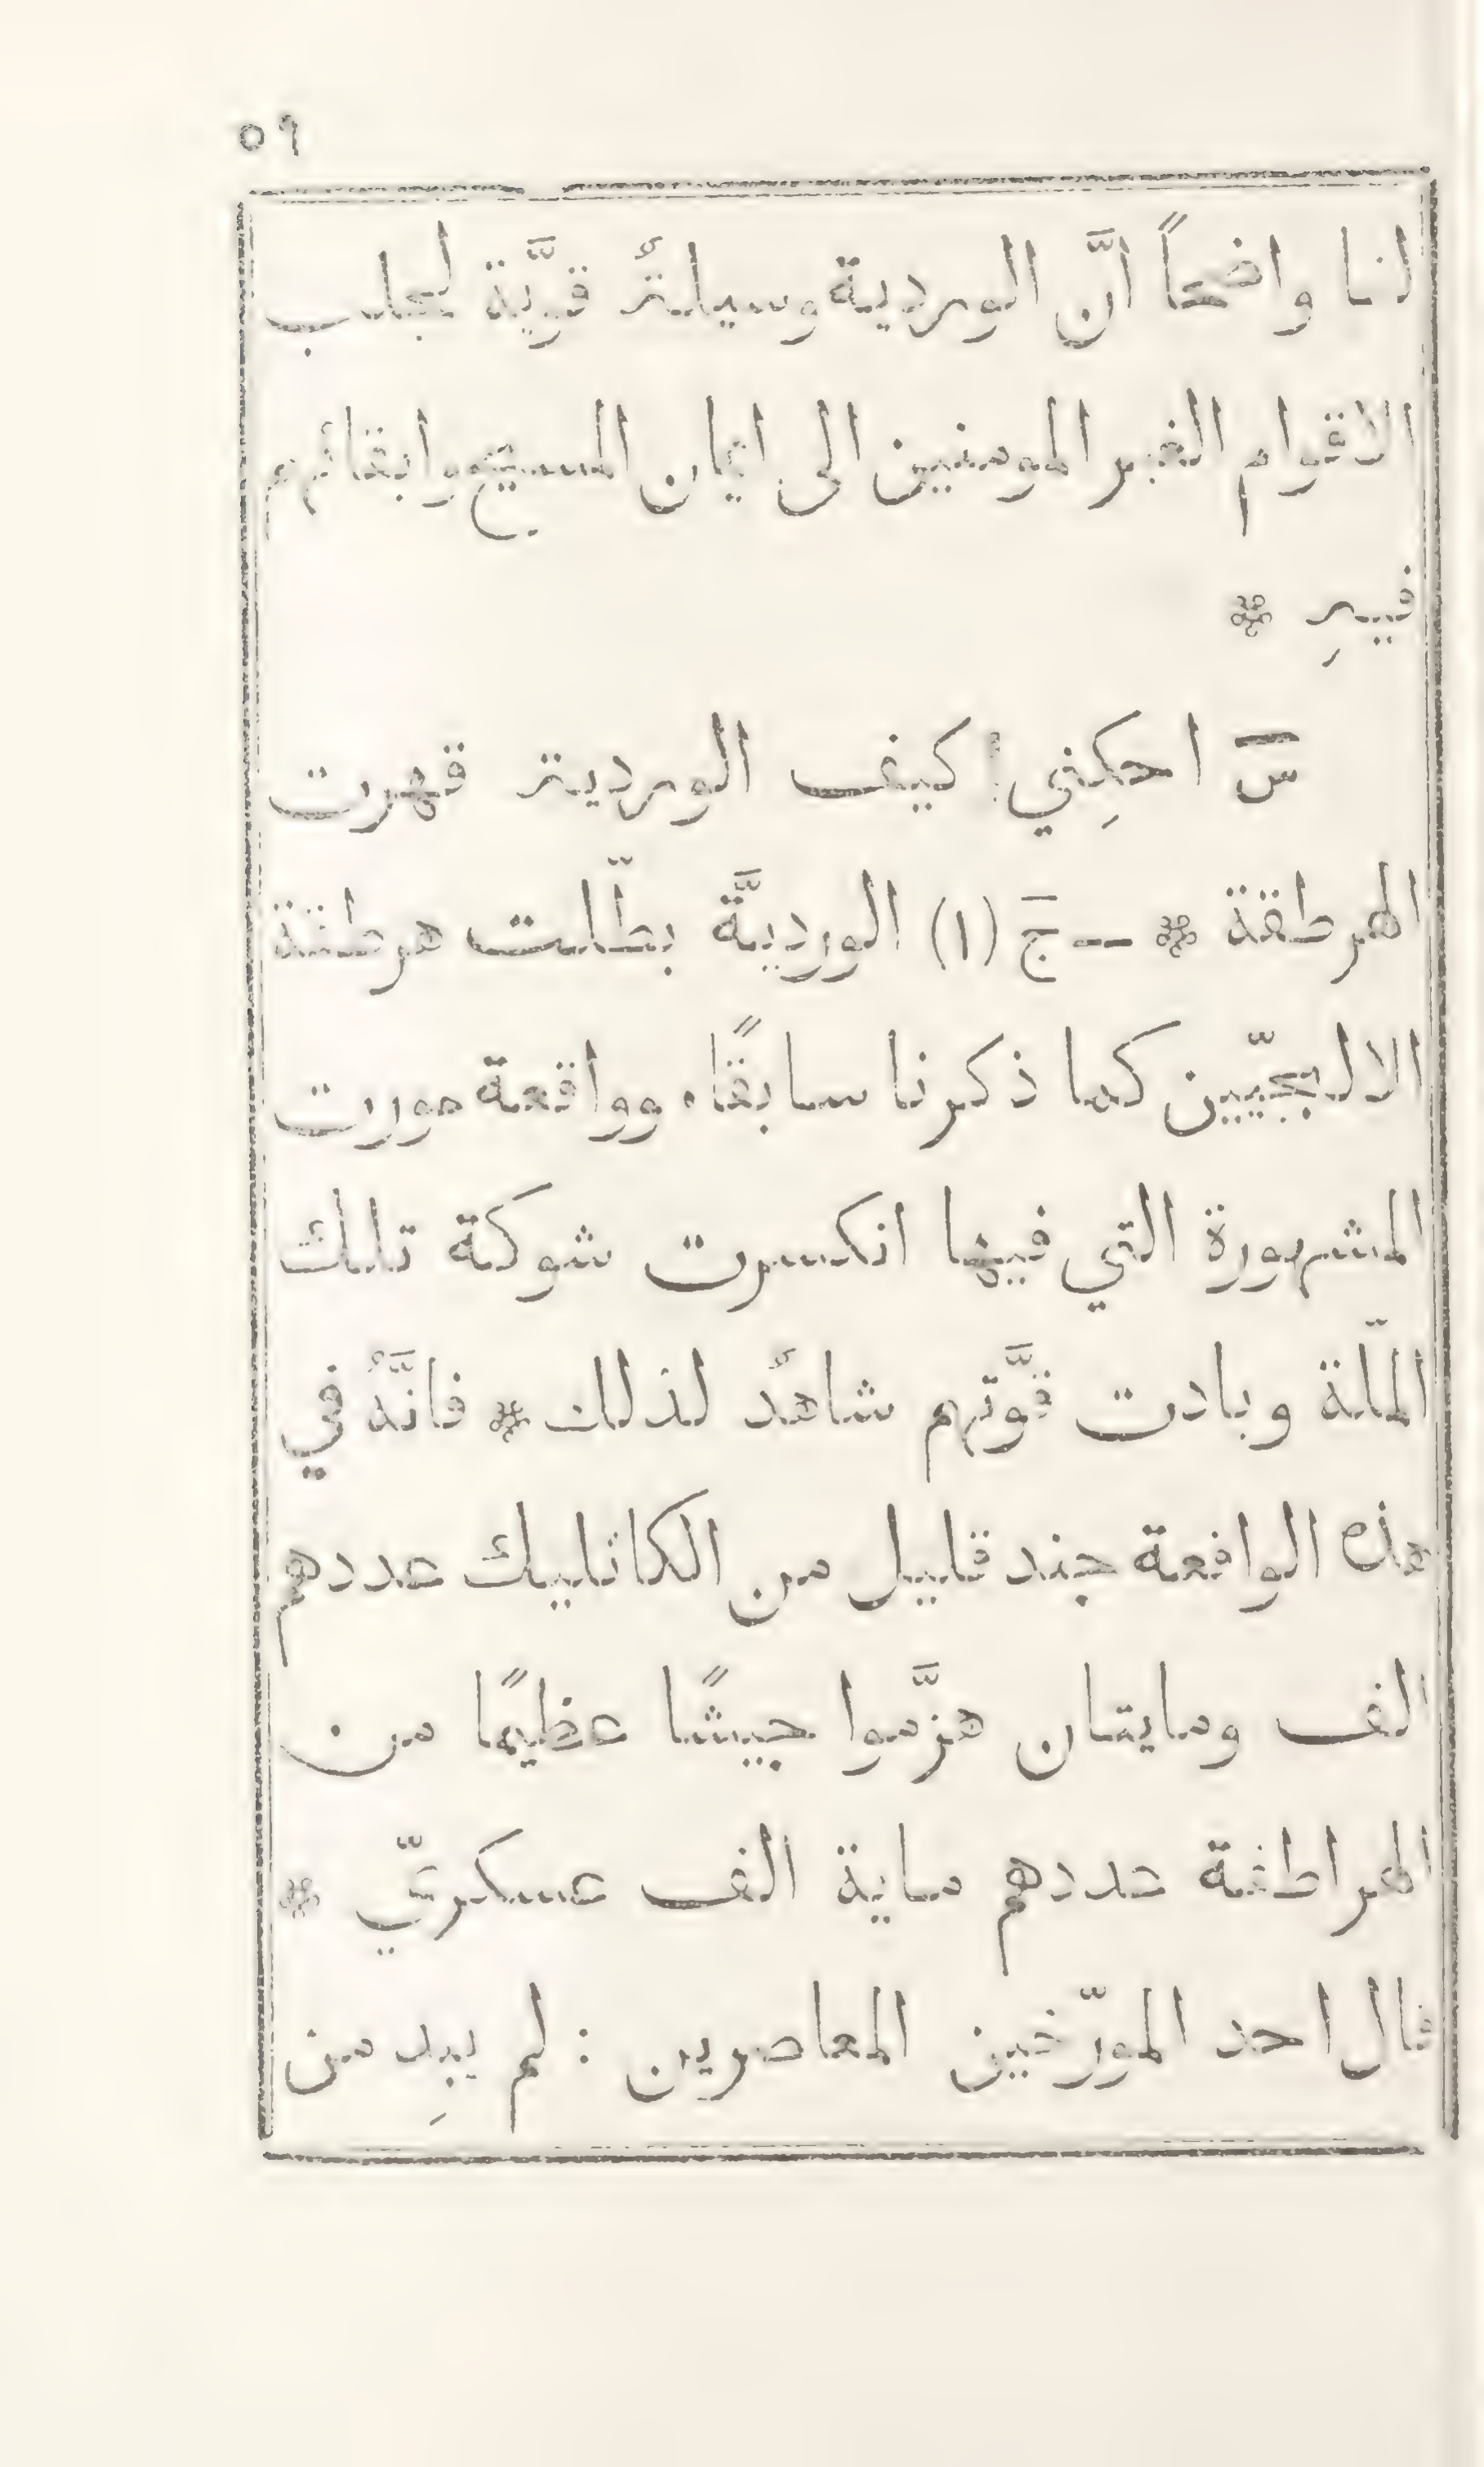 ٥٩
لنا واضحاً أنَّ الوردية وسيلةٌ قويَّة لجلب
الاقوام الغير المومنين الى ايمان المسيح وابقائهم
فيهِ ❊
سَ احكِني! كيف الوردية قهرت
الهرطقة ❊ — جَ (١) الورديَّة بطّلت هرطقة
الالبجيّين كما ذكرنا سابقًا، وواقعة مورت
المشهورة التي فيها انكسرت شوكة تلك
الملّة وبادت قوَّتهم شاهدٌ لذلك ❊ فانَّهُ في
هذه الواقعة جند قليل من الكاثليك عددهم
الف ومايتان هزَّموا جيشًا عظيمًا من
الهراطقة عددهم ماية الف عسكريّ ❊
قال احد المورّخين المعاصرين : لم يبِد من